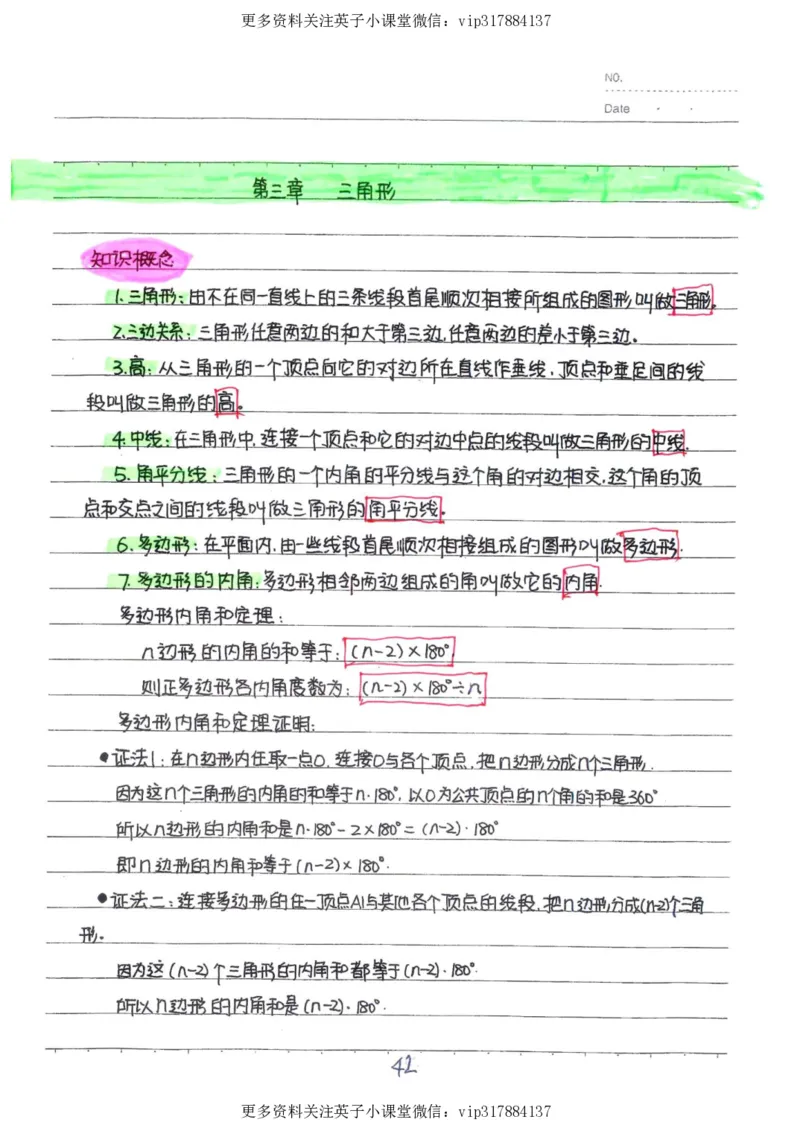 更多资料关注英子小课堂微信：vip317884137
NO.
Date
第三章 三角形
知识概念
1.三角形：由不在同一直线上的三条线段首尾顺次相接所组成的图形叫做三角形。
2.三边关系：三角形任意两边的和大于第三边，任意两边的差小于第三边。
3.高：从三角形的一个顶点向它的对边所在直线作垂线，顶点和垂足间的线
段叫做三角形的高。
4.中线：在三角形中，连接一个顶点和它的对边中点的线段叫做三角形的中线.
5.角平分线：三角形的一个内角的平分线与这个角的对边相交，这个角的顶
点和交点之间的线段叫做三角形的角平分线。
6.多边形：在平面内，由一些线段首尾顺次相接组成的图形叫做多边形.
7.多边形的内角：多边形相邻两边组成的角叫做它的内角.
多边形内角和定理：
n边形的内角的和等于：(n-2)×180°
则正多边形各内角度数为：(n-2)×180°÷n
多边形内角和定理证明：
●证法1：在n边形内任取一点O，连接O与各个顶点，把n边形分成n个三角形.
因为这n个三角形的内角的和等于n·180°，以O为公共顶点的n个角的和是360°
所以n边形的内角和是n·180°-2×180°=(n-2)·180°
即n边形的内角和等于(n-2)×180°.
●证法二：连接多边形的任一顶点A1与其他各个顶点的线段，把n边形分成(n-2)个三角
形。
因为这(n-2)个三角形的内角和都等于(n-2)·180°.
所以n边形的内角和是(n-2)·180°.
42
更多资料关注英子小课堂微信：vip317884137